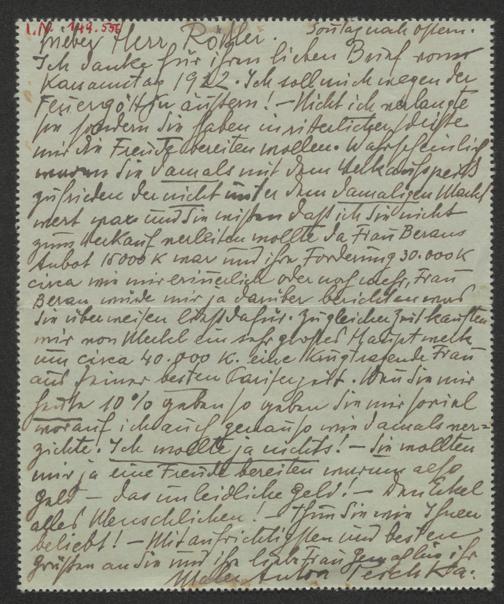 I.N. 149.556
Lieber Herr Rößler. Sonntag nach Ostern.
Ich danke für ihren lieben Brief vom
Karsamstag 1922. Ich soll mich wegen der
Feuergöttin äußern! – Nicht ich verlangte
sie sondern Sie haben in ritterlicher Weise
mir die Freude bereiten wollen. Wahrscheinlich
waren Sie damals mit dem Verkaufspreis
zufrieden der nicht unter dem damaligen Markt
wert war und Sie wissen daß ich Sie nicht
zum Verkauf verleiten wollte da Frau Beraus
Anbot 15000 K war und ihre Forderung 30.000 K
circa wie mir erinnerlich oder noch mehr, Frau
Berau würde mir ja darüber berichten was
Sie überweisen ließ dafür. Zu gleicher Zeit kauften
mir von Mechel ein sehr großes Hauptwerk
um circa 40.000 K. eine Frau
aus seiner besten Pariserzeit. Wenn Sie mir
heute 10% geben so geben Sie mir soviel
worauf ich auch genau so wie damals ver-
zichte. Ich wollte ja nichts! – Sie wollten
mir ja eine Freude bereiten warum also
Geld – das unleidliche Geld! – Den Ekel
alles Menschlichen! – Thun Sie wie Ihnen
beliebt! – Mit aufrichtigsten und besten
Grüßen an Sie und ihre liebe Frau ihr
Maler Anton